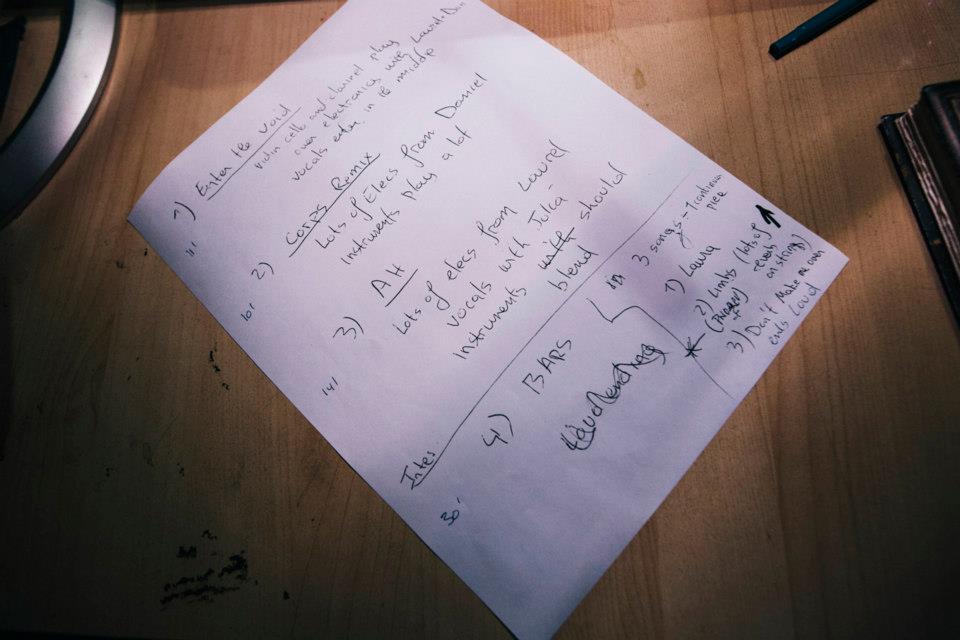 1) Enter the Void
violin cello and clarinet play
over electronics with Laurel + Dan
vocals enter in the middle
11'
2) Corps Remix
Lots of Elecs from Daniel
instruments play a lot
10'
3) AH
Lots of elecs from Laurel
vocals with Julia -
instruments with should
blend
14'
Inter.
4) BARS
30'
3 songs - 1 continuous
piece
1) Laura
2) Limits (lots of
reverb
on strings)
3) Don't Make me over
ends Loud